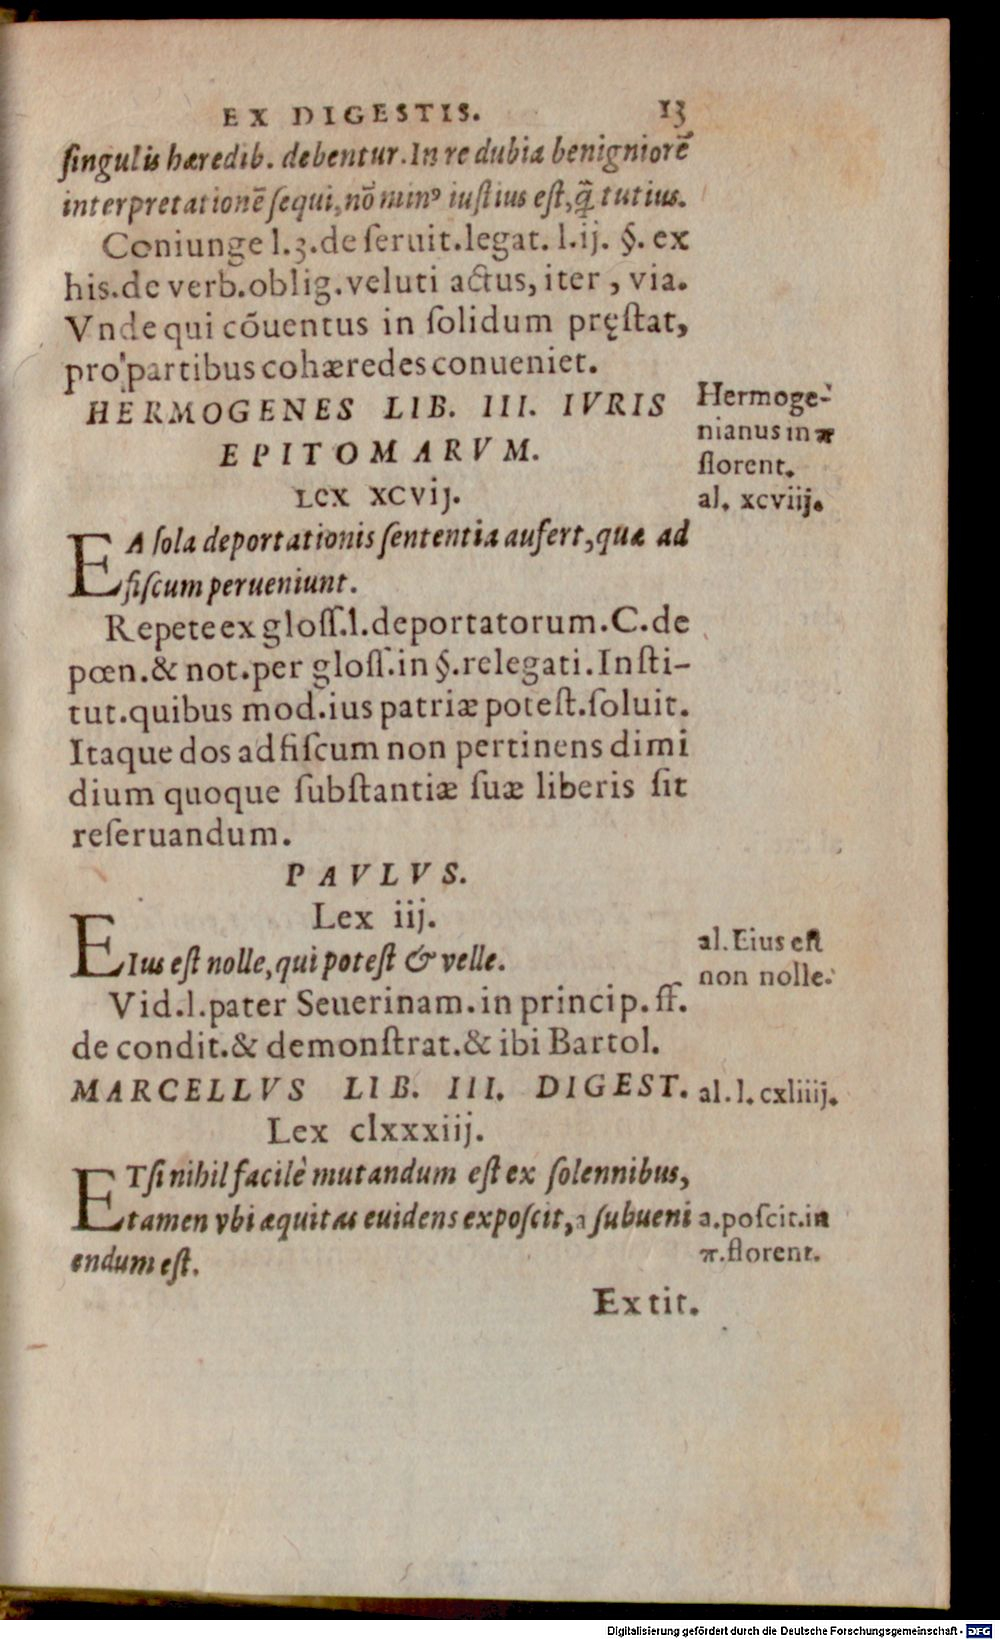 EX DIGESTIS. 13
ſingulis hæredib. debentur. In re dubia benigniorē
interpretationē ſequi, nō minꝰ iuſtius eſt, q̃ tutius.
Coniunge l.3.de ſeruit.legat. l.ij. §. ex
his.de verb.oblig.veluti actus, iter, via.
Vnde qui cōuentus in ſolidum pręſtat,
pro partibus cohæredes conueniet.
HERMOGENES LIB. III. IVRIS
EPITOMARVM.
Hermoge-
nianus in π
florent.
Lex xcvij.
al. xcviij.
EA ſola deportationis ſententia aufert, quæ ad
fiſcum perueniunt.
Repete ex gloſſ.l.deportatorum.C.de
pœn.& not.per gloſſ.in §.relegati.Inſti-
tut.quibus mod.ius patriæ poteſt.ſoluit.
Itaque dos ad fiſcum non pertinens dimi
dium quoque ſubſtantiæ ſuæ liberis ſit
reſeruandum.
PAVLVS.
Lex iij.
EIus eſt nolle, qui poteſt & velle.
al. Eius eſt
non nolle.
Vid.l.pater Seuerinam.in princip.ff.
de condit.& demonſtrat.& ibi Bartol.
MARCELLVS LIB. III. DIGEST.
al.l.cxliiij.
Lex clxxxiij.
ETſi nihil facilè mutandum eſt ex ſolennibus,
tamen vbi æquitas euidens expoſcit, a ſubueni
endum eſt.
a.poſcit.in
π.florent.
Ex tit.
Digitalisierung gefördert durch die Deutsche Forschungsgemeinschaft - DFG